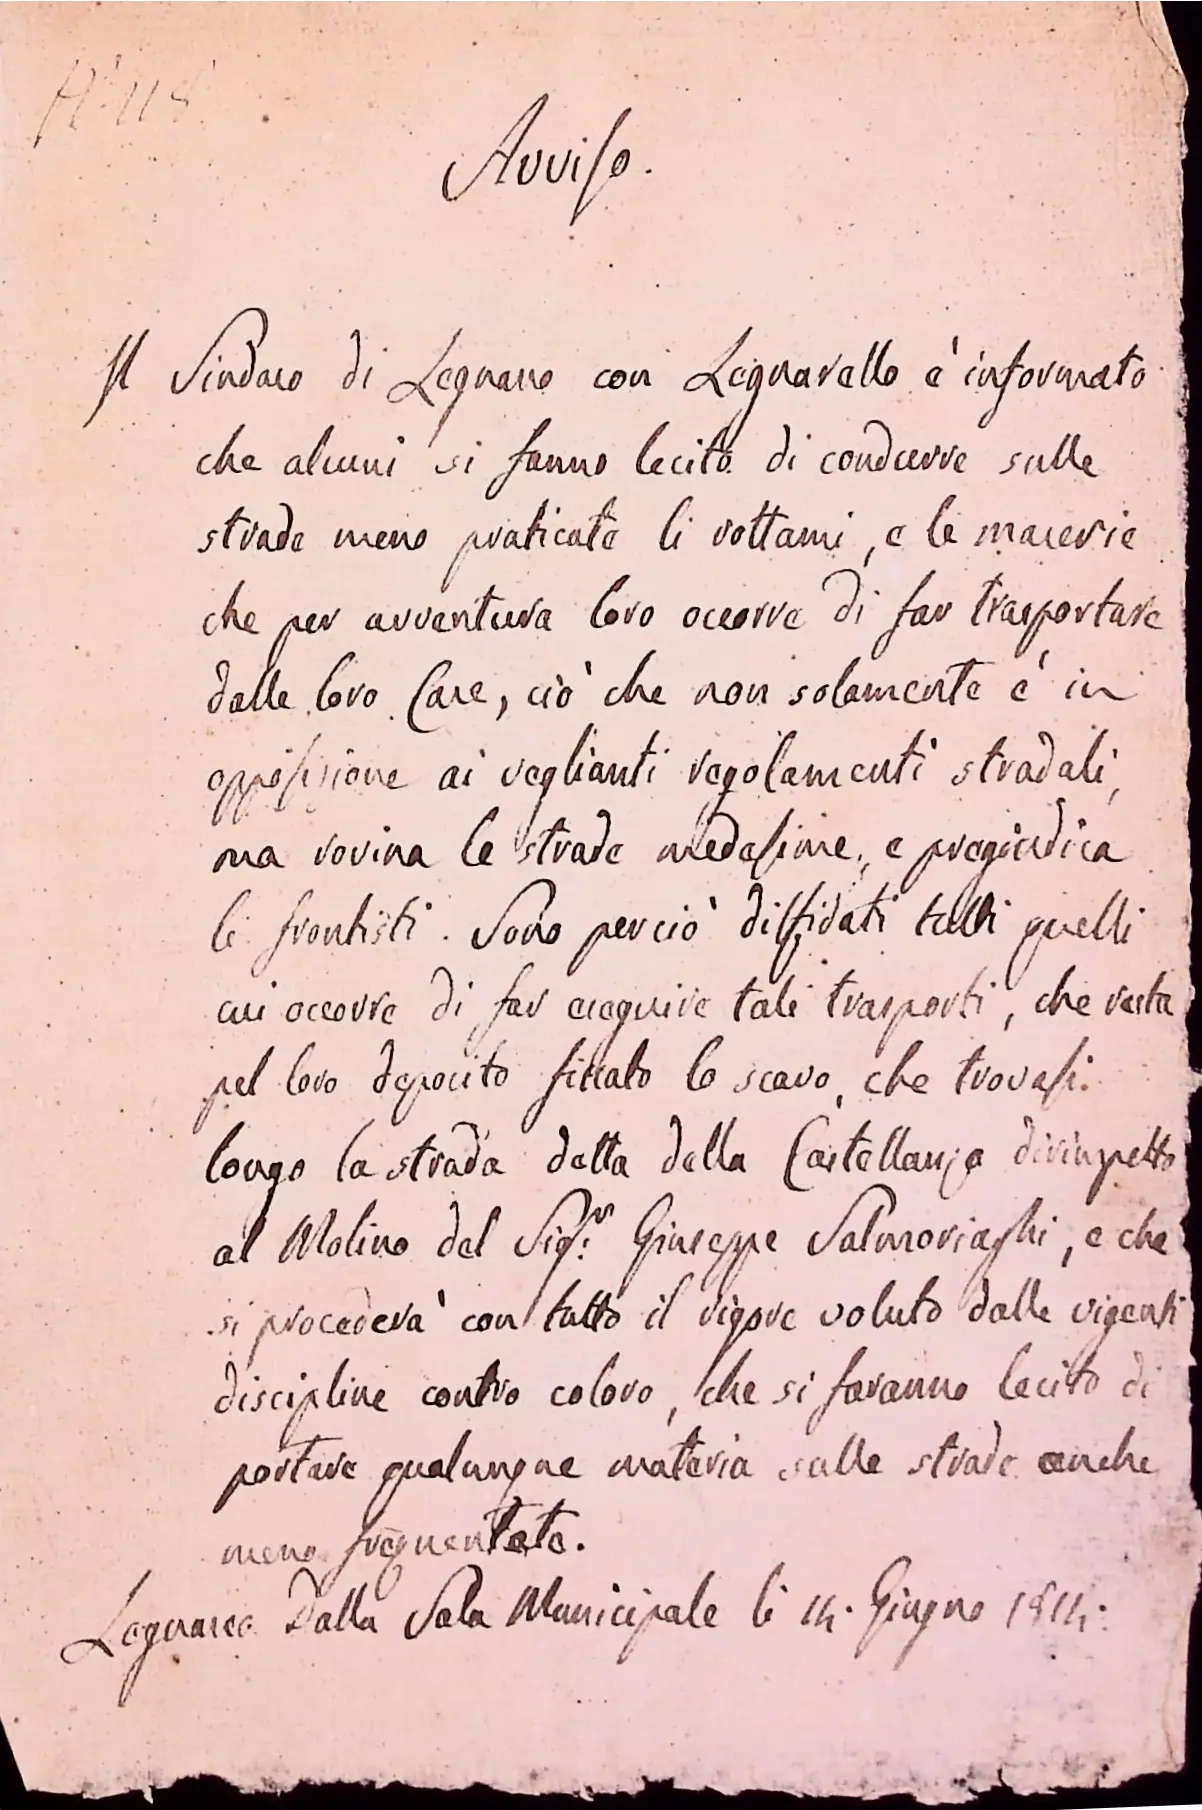 N.° 118.
Avviso.
Il Sindaco di Legnano con Legnarello è informato
che alcuni si fanno lecito di condurre sulle
strade meno praticate li rottami, e le macerie
che per avventura loro occorre di far trasportare
dalle loro Case, ciò che non solamente è in
opposizione ai veglianti regolamenti stradali,
ma rovina le strade medesime, e pregiudica
li frontisti. Sono perciò diffidati tutti quelli
cui occorre di far eseguire tali trasporti, che resta
pel loro deposito fissato lo scavo, che trovasi
longo la strada detta della Castellanza dirimpetto
al Molino del Sig.r Giuseppe Salmoriaghi, e che
si procederà con tutto il rigore voluto dalle vigenti
discipline contro coloro, che si faranno lecito di
portare qualunque materia sulle strade anche
meno frequentate.
Legnano Dalla Sala Municipale li 14. Giugno 1814.